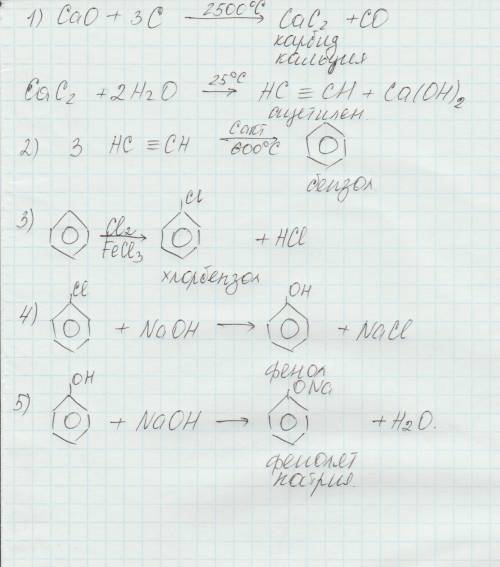 1) CaO + 3C 2500°C → CaC2 + CO
карбид
кальция
CaC2 + 2H2O 25°C → HC ≡ CH + Ca(OH)2
ацетилен
2) 3 HC ≡ CH Cакт 600°C →
бензол
3) Cl2 FeCl3 → Cl + HCl
хлорбензол
4) Cl + NaOH → OH + NaCl
фенол
5) OH + NaOH → ONa + H2O.
фенолят
натрия.